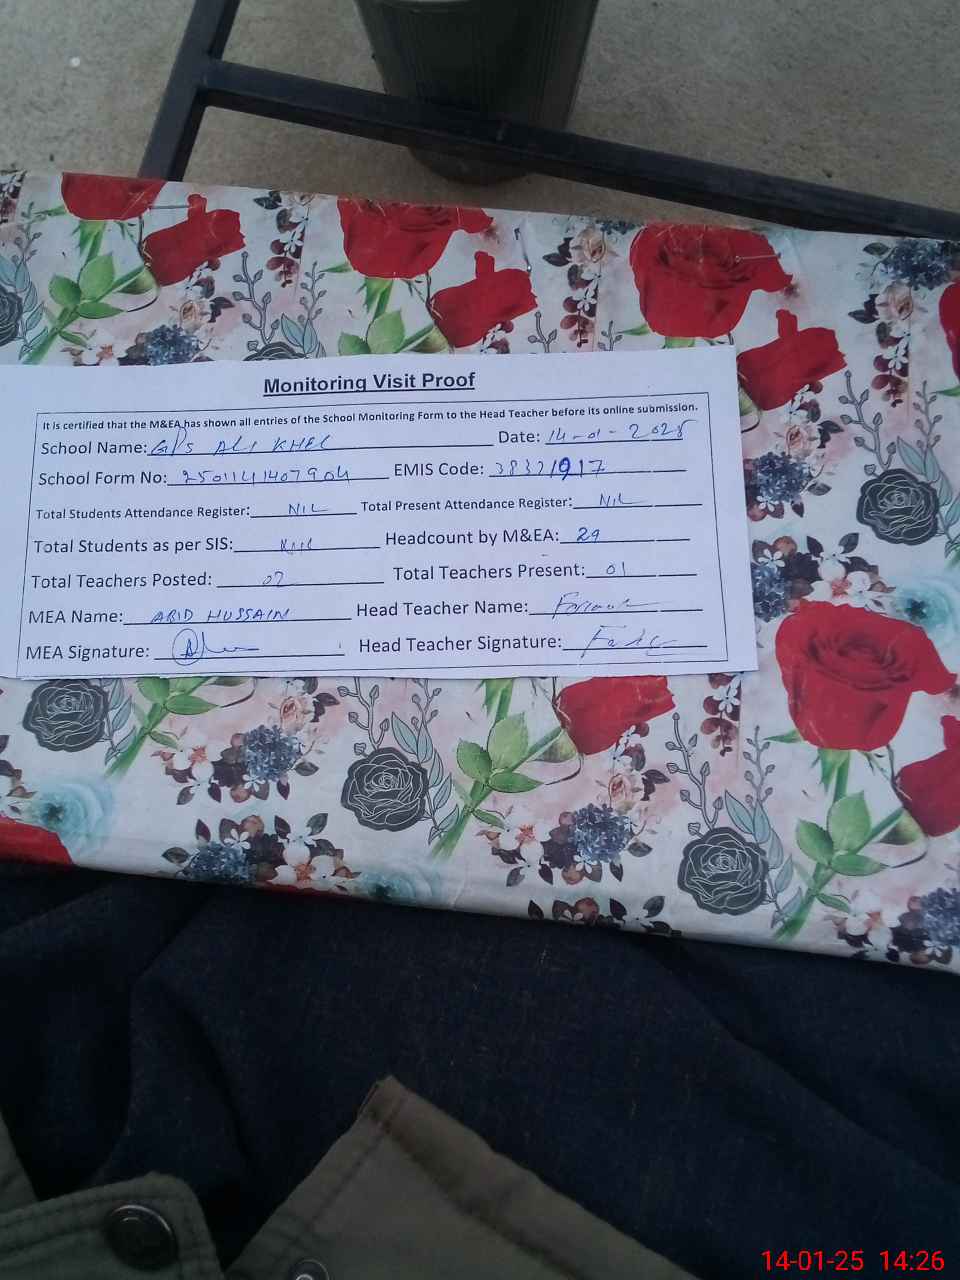 Monitoring Visit Proof
It is certified that the M&EA has shown all entries of the School Monitoring Form to the Head Teacher before its online submission.
School Name: GPS ALI KHEL Date: 14-01-2025
School Form No: 2501141407904 EMIS Code:
Total Students Attendance Register: NIL Total Present Attendance Register: NIL
Total Students as per SIS: Headcount by M&EA: 29
Total Teachers Posted: 02 Total Teachers Present: 01
MEA Name: ABID HUSSAIN Head Teacher Name:
MEA Signature: Head Teacher Signature:
14-01-25 14:26